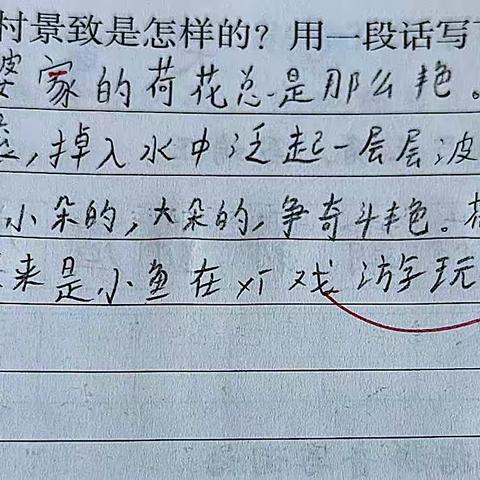 村景致是怎样的？用一段话写
婆家的荷花总是那么艳。
，掉入水中泛起一层层波
小朵的，大朵的，争奇斗艳。
来是小鱼在戏游玩